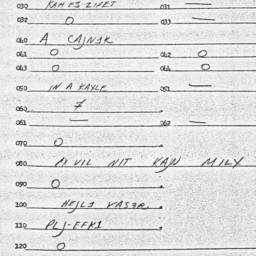 030 KAM ES ZIPET 031 —
032 O 033 —
040 A CAJNIK
041 O 042 O
043 O 044 O
050 IN A KAYLE 051 —
060 7
061 — 062 —
070 O
080 VIL NIT KAJN MILX
090 O
100 HEJLI VASER.
110 PLJ-FFKI
120 O